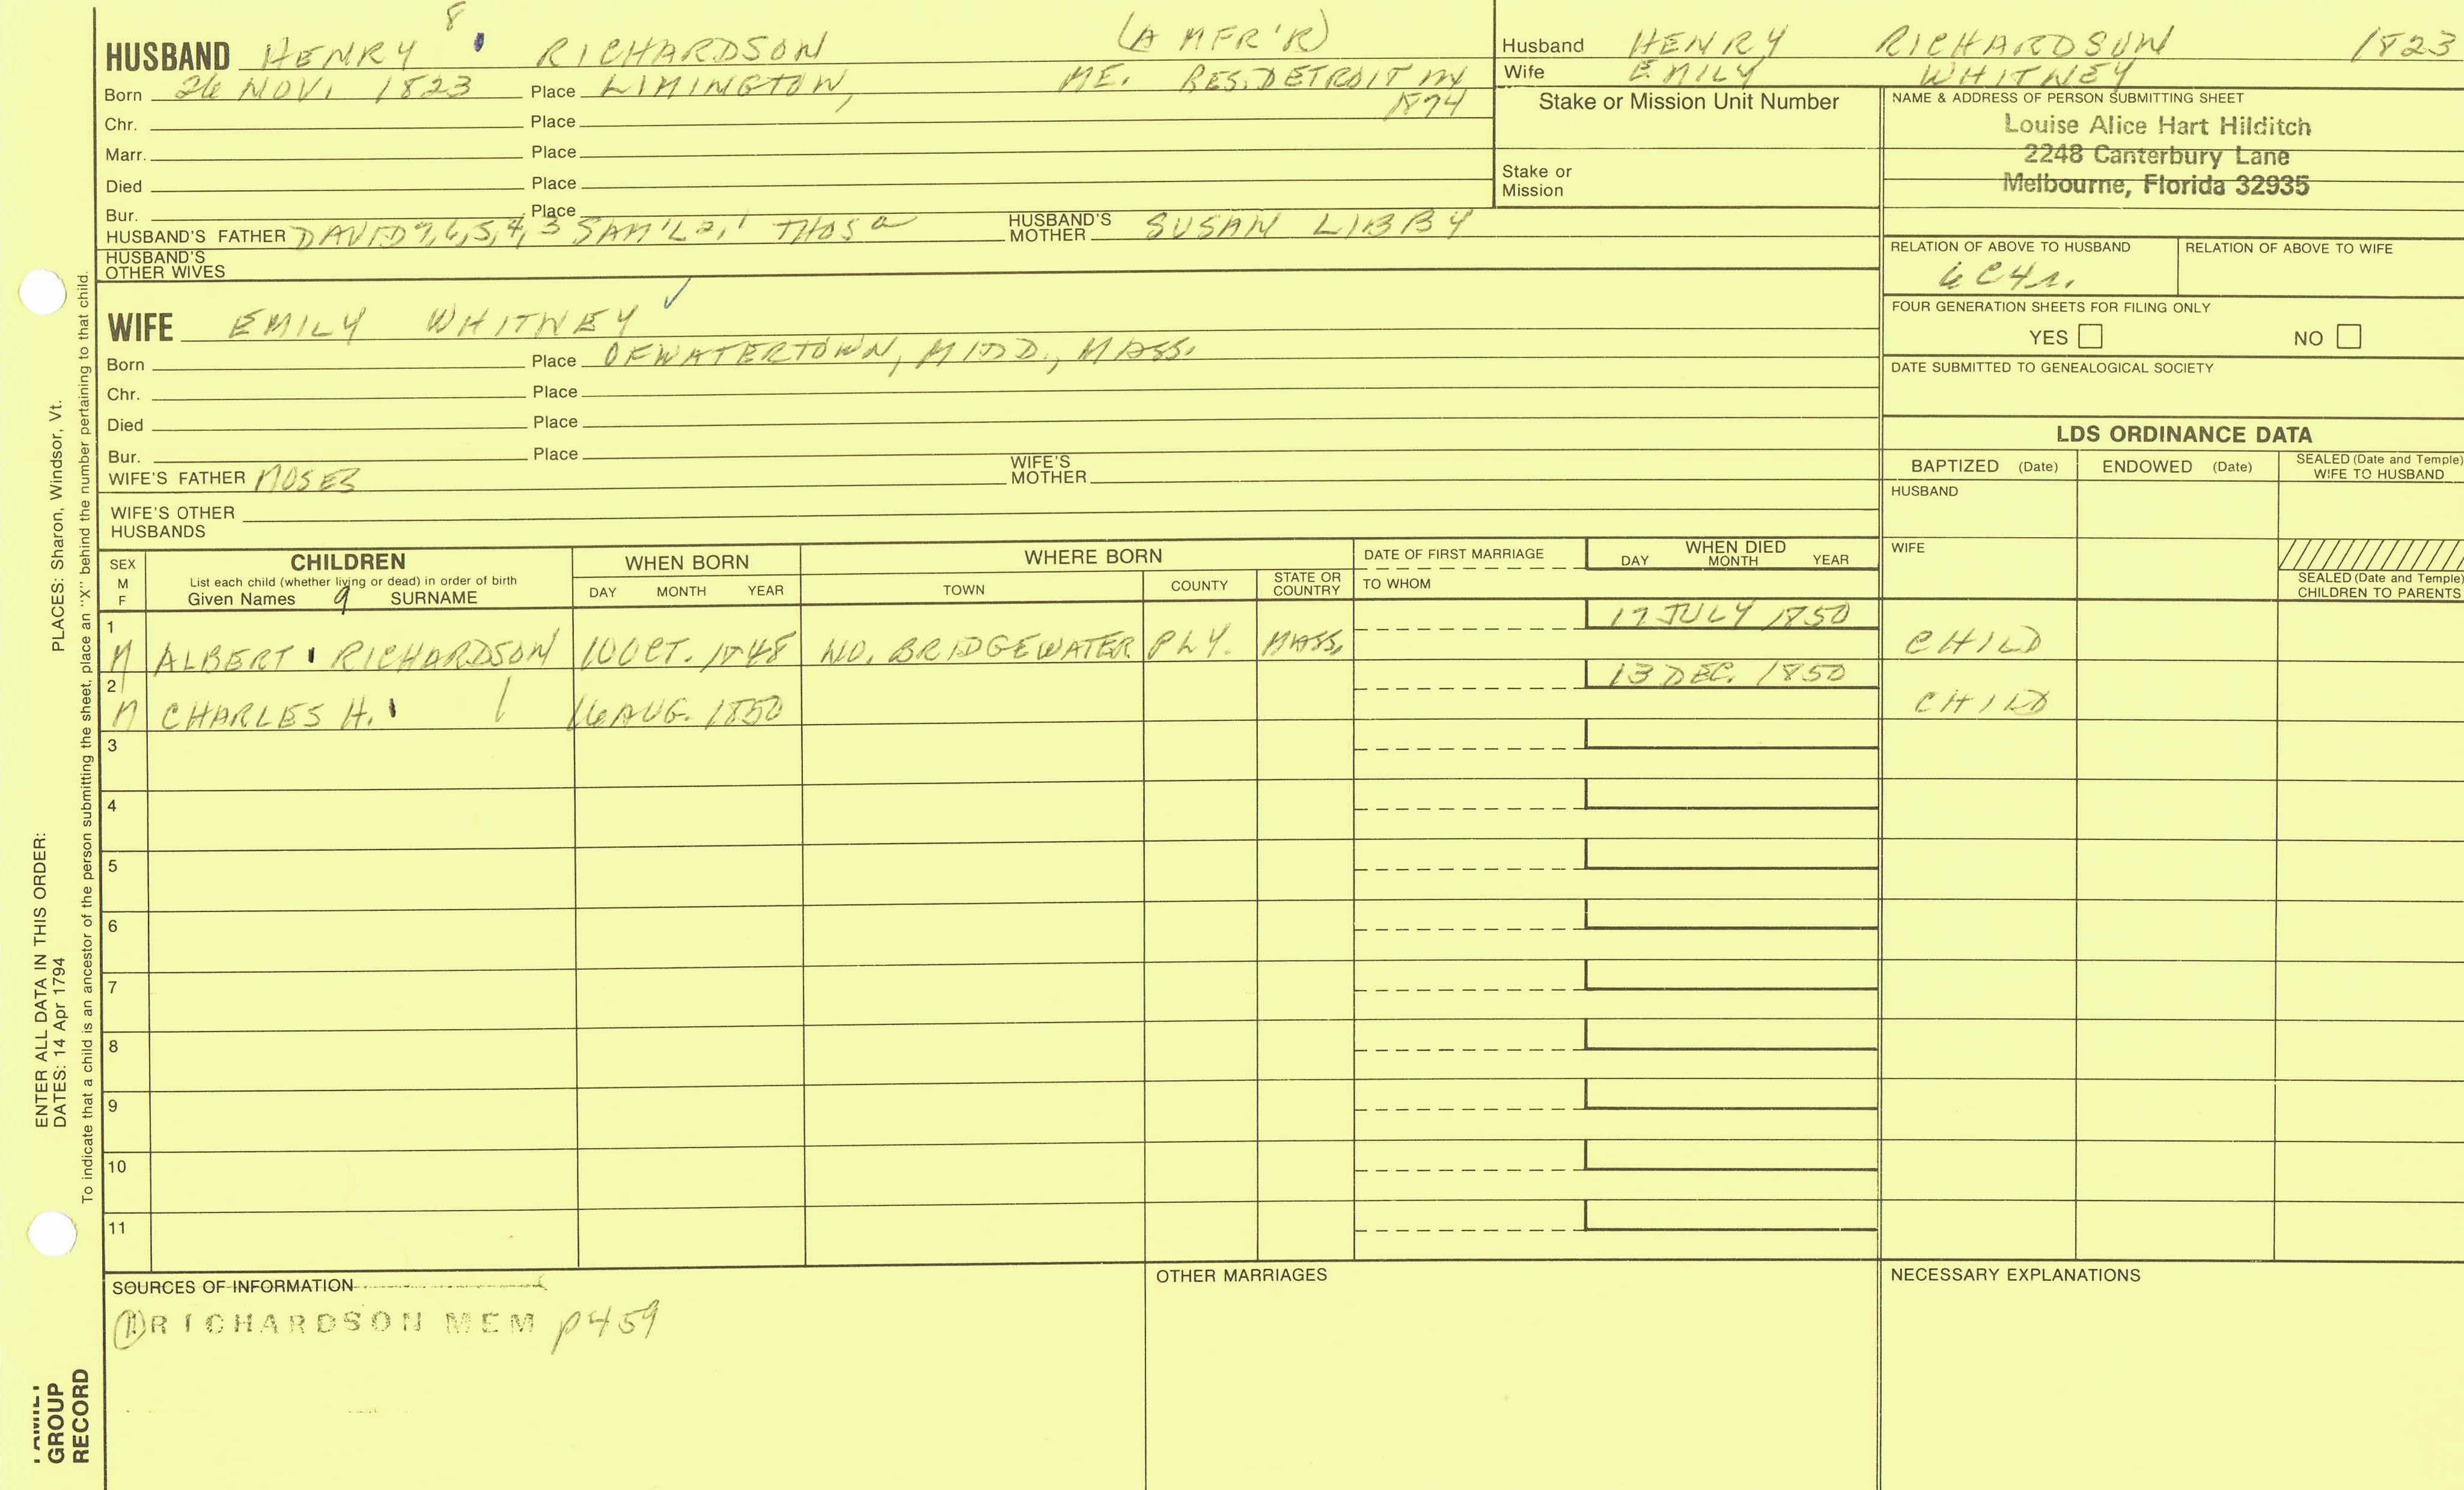 8
HUSBAND HENRY RICHARDSON (A MFR'R)
Born 26 NOV. 1823 Place LIMINGTON, ME. RES. DETROIT
1874
Chr. Place
Marr. Place
Died Place
Bur. Place
HUSBAND'S FATHER DAVID 7,6,5,4,3 SAM'L 2,1 THOS HUSBAND'S MOTHER SUSAN LIBBY
HUSBAND'S OTHER WIVES
WIFE EMILY WHITNEY ✓
Born Place OF WATERTOWN, MIDD., MASS.
Chr. Place
Died Place
Bur. Place
WIFE'S FATHER MOSES WIFE'S MOTHER
WIFE'S OTHER HUSBANDS
Husband HENRY RICHARDSON 1823
Wife EMILY WHITNEY
Stake or Mission Unit Number
Stake or Mission
NAME & ADDRESS OF PERSON SUBMITTING SHEET
Louise Alice Hart Hilditch
2248 Canterbury Lane
Melbourne, Florida 32935
RELATION OF ABOVE TO HUSBAND RELATION OF ABOVE TO WIFE
6C4r.
FOUR GENERATION SHEETS FOR FILING ONLY
YES NO
DATE SUBMITTED TO GENEALOGICAL SOCIETY
LDS ORDINANCE DATA
BAPTIZED (Date) ENDOWED (Date) SEALED (Date and Temple) WIFE TO HUSBAND
HUSBAND
WIFE
SEALED (Date and Temple) CHILDREN TO PARENTS
SEX M F
CHILDREN
List each child (whether living or dead) in order of birth
Given Names 9 SURNAME
WHEN BORN
DAY MONTH YEAR
WHERE BORN
TOWN COUNTY STATE OR COUNTRY
DATE OF FIRST MARRIAGE
TO WHOM
WHEN DIED
DAY MONTH YEAR
1 M ALBERT RICHARDSON 10 OCT. 1848 NO. BRIDGEWATER PLY. MASS. 17 JULY 1850 CHILD
2 M CHARLES H. 16 AUG. 1850 13 DEC. 1850 CHILD
3
4
5
6
7
8
9
10
11
SOURCES OF INFORMATION
① RICHARDSON MEM p459
OTHER MARRIAGES
NECESSARY EXPLANATIONS
ENTER ALL DATA IN THIS ORDER:
DATES: 14 Apr 1794 PLACES: Sharon, Windsor, Vt.
To indicate that a child is an ancestor of the person submitting the sheet, place an "X" behind the number pertaining to that child.
GROUP
RECORD